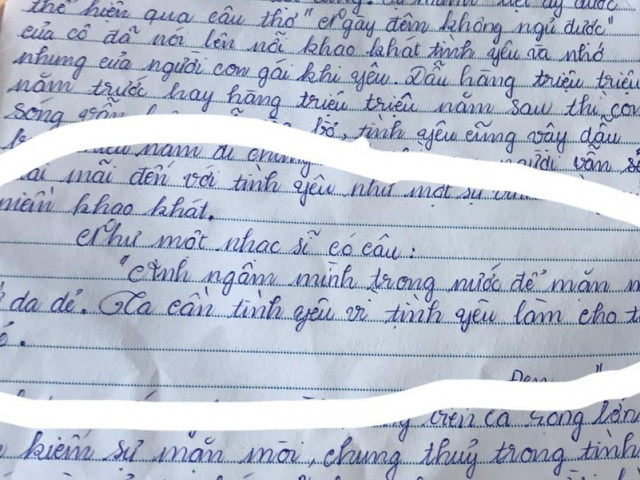 thể hiện qua câu thơ "Ngày đêm không ngủ được"
của cô đã nói lên nỗi khao khát tình yêu và nhớ
nhung của người con gái khi yêu. Dẫu hàng triệu triệu
năm trước hay hàng triệu triệu năm sau thì con
sóng vẫn tình yêu cũng vậy dẫu
năm đi chăng người vẫn
mãi đến với tình yêu như một sự
niềm khao khát.
Như một nhạc sĩ có câu:
"Anh ngâm mình trong nước để mặn
da dẻ. Ta cần tình yêu vì tình yêu làm cho
trên cả rộng lớn
kiếm sự mặn mòi, chung thuỷ trong tình